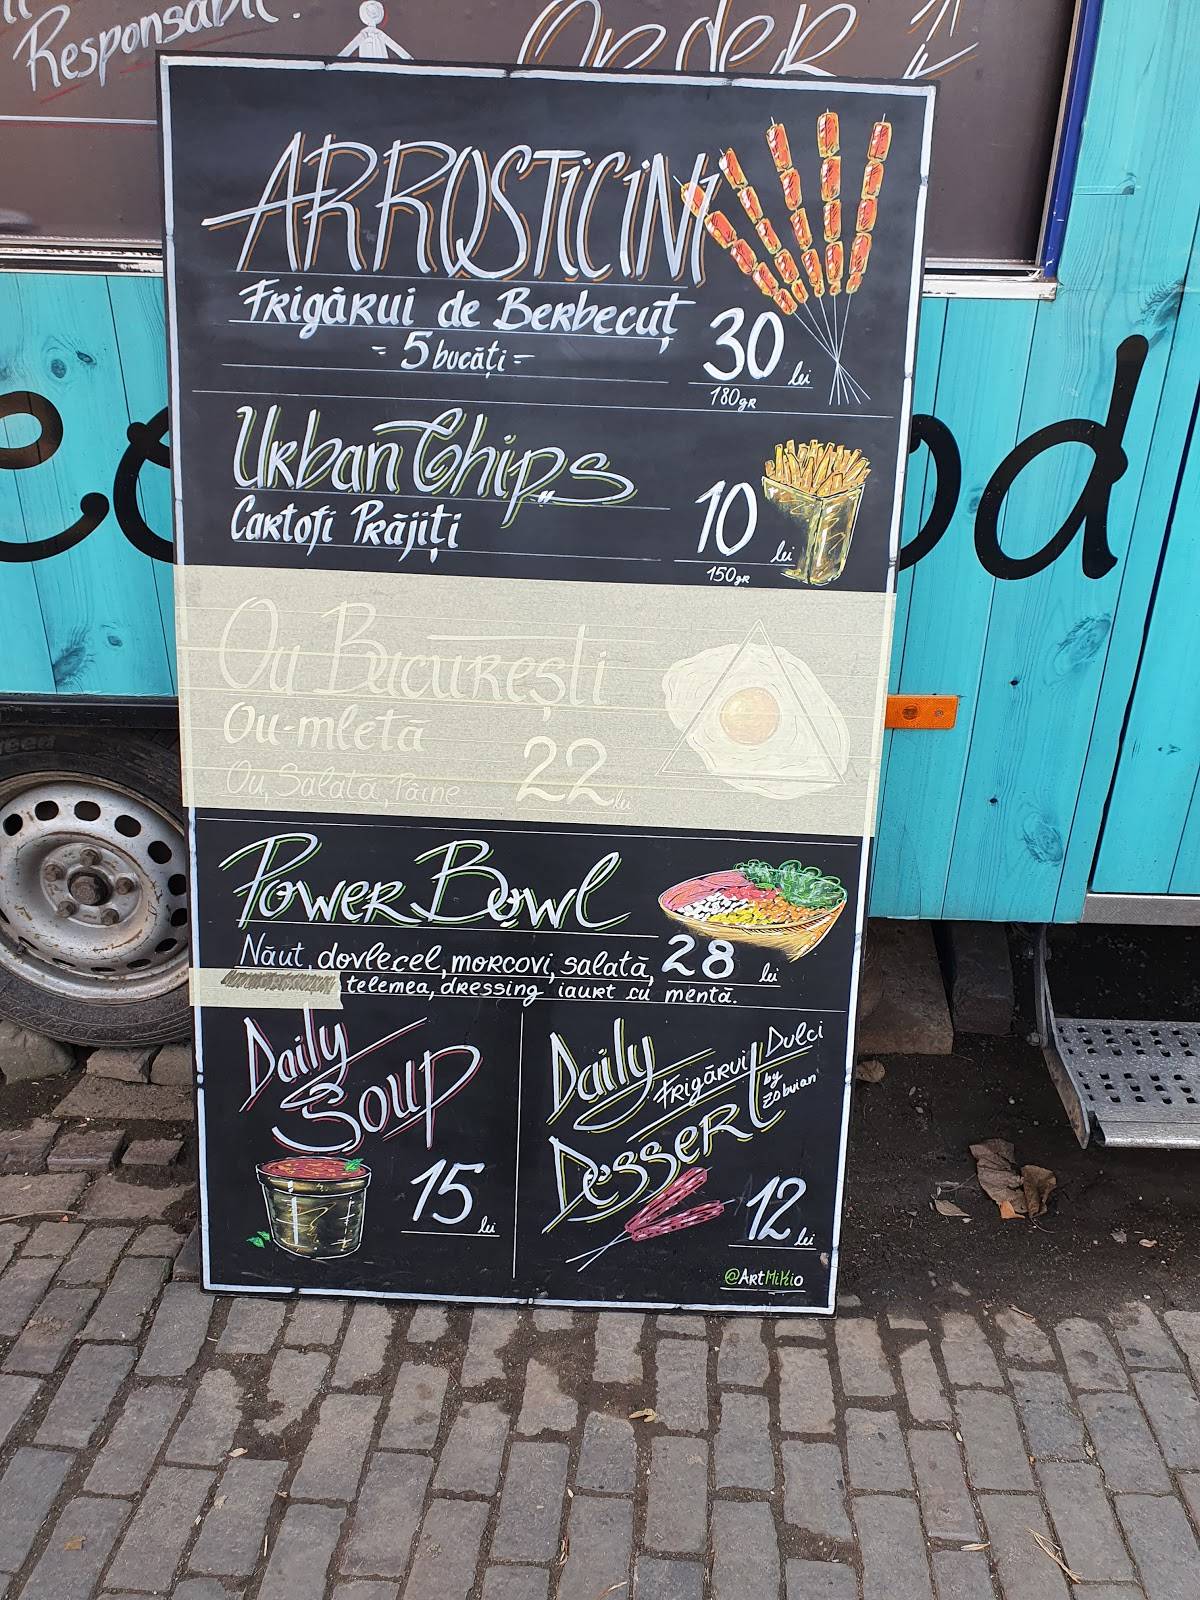 Responsabil.
Order
ARROSTiCiNi
Frigărui de Berbecuț
- 5 bucăți -
30 lei
180gR
Urban Chips
Cartofi Prăjiți
10 lei
150gR
Ou București
Ou-mletă
Ou, Salată, Pâine
22 lei
Power Bowl
Năut, dovlecel, morcovi, salată,
telemea, dressing iaurt cu mentă.
28 lei
Daily
Soup
15 lei
Daily
Dessert
Frigărui Dulci
by
zobvian
12 lei
@ArtMiKio
ood